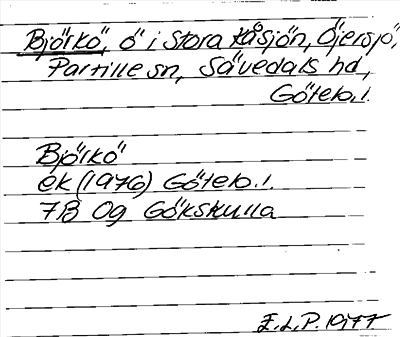 Björkö, ö i Stora Kåsjön, Öjersjö,
Partille sn, Sävedals hd,
Göteb. l.
Björkö
ek (1976) Göteb. l.
7B 0g Gökskulla
E.L.P. 1977